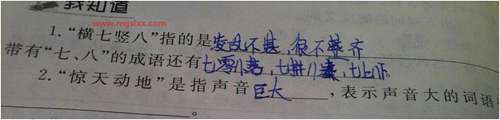 我知道
www.mgslxx.com
1.“横七竖八”指的是 不整,很不整齐
带有“七、八”的成语还有七零八落,七拼八凑,七上八下
2.“惊天动地”是指声音巨大,表示声音大的词语
。